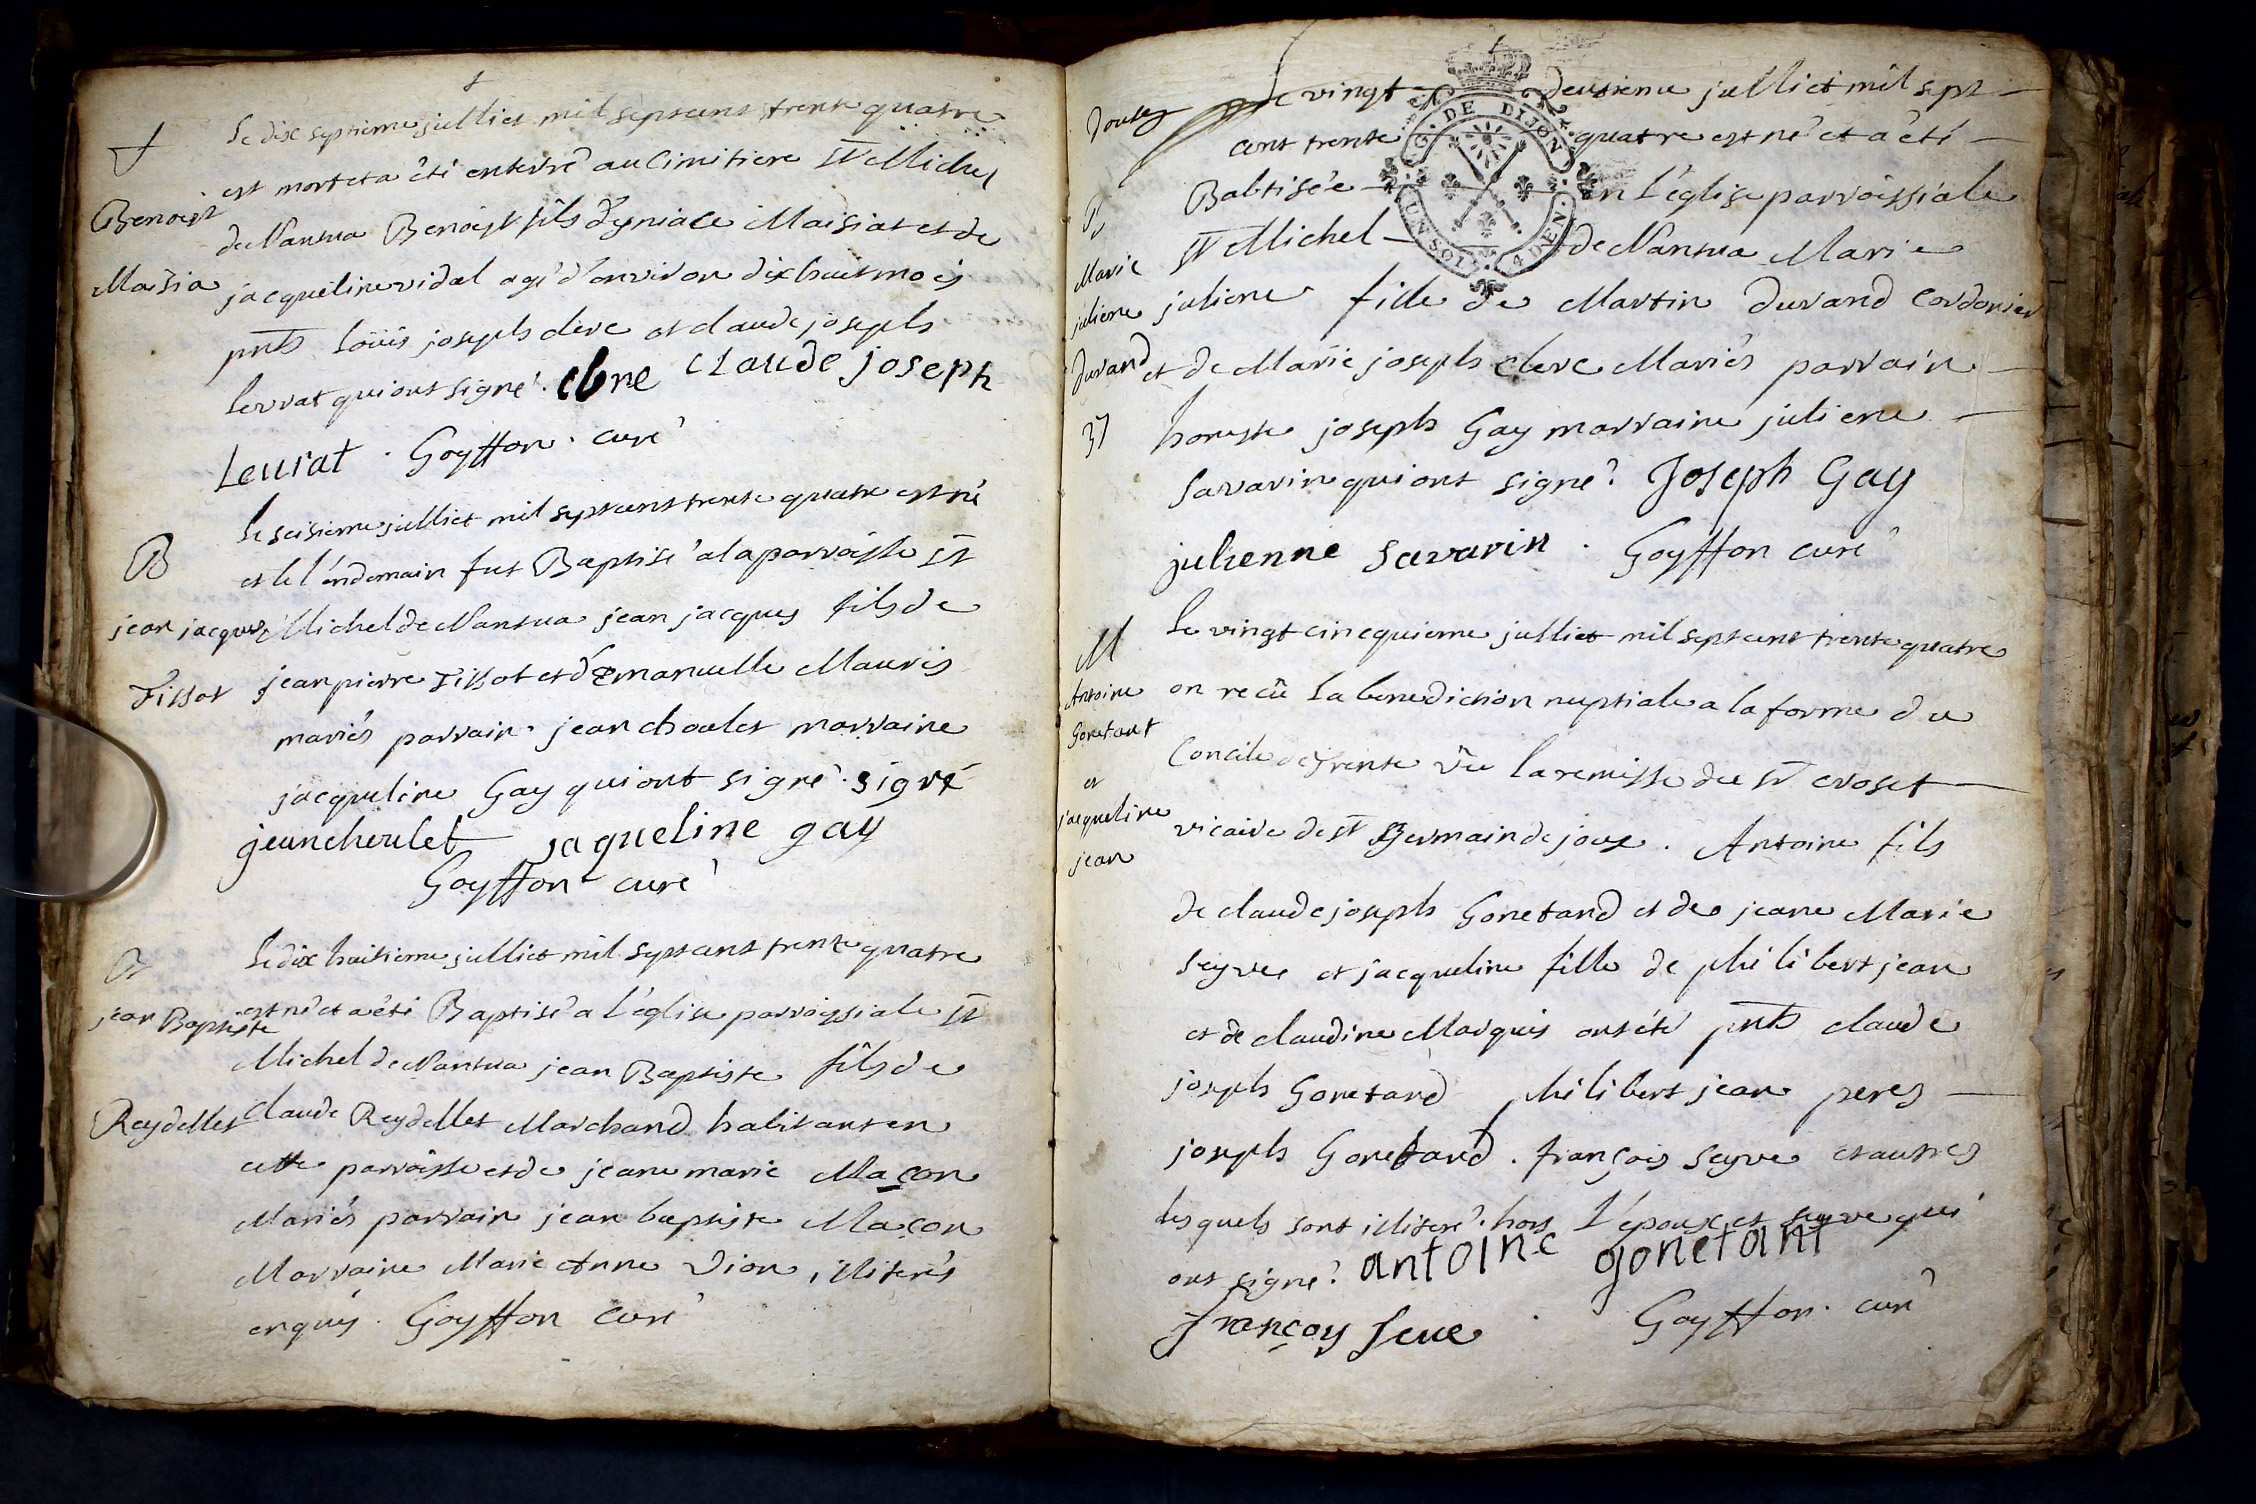 Le dix septieme julliet mil septcent trente quatre
est mort et a été enterré au Cimitiere St Michel
Benoist
de Nantua Benoist fils d'yniace Maisiat et de
Maisia
jacqueline vidal agé d'environ dix huit mois
pnts Loüis joseph clerc et claude joseph
Levrat qui ont signé. clere claude joseph
Leurat . Goyffon . curé
Le seisieme julliet mil septcent trente quatre est né
B
et le l'endemain fut Baptisé a la parroisse St
jean jacques
Michel de Nantua jean jacques fils de
Tissot
jean pierre Tissot et d'Emanuelle Mauris
mariés parrain jean choulet marraine
jacqueline Gay qui ont signé. signé
jean choulet jaqueline gay
Goyffon curé
Le dix huitieme julliet mil septcent trente quatre
B
jean Baptiste
est né et a été Baptisé a l'église parroissiale St
Michel de Nantua jean Baptiste fils de
Reydellet
Claude Reydellet Marchand habitant en
cette parroisse et de jeane marie Maçon
Mariés parrain jean baptiste Maçon
Marraine Marie Anne Dion, illiterés
enquis . Goyffon curé
Le vingt deusieme julliet mil sept
cent trente quatre est né et a été
G. DE DIJON
UN SOL 4 DEN.
B
Babtisée en l'église parroissiale
Marie
St Michel de Nantua Marie
juliene
juliene fille de Martin Durand Cordonier
Durand
et de Marie joseph clerc Mariés parrain
37
honeste joseph Gay marraine juliene
Savarin qui ont signé. Joseph Gay
julienne Savarin . Goyffon curé
Le vingt cinequieme julliet mil septcent trente quatre
M
Antoine
on recû la benediction nuptiale a la forme du
Gonetant
Concile de trente vûe la remisse du Sr crozet
et
jacqueline
vicaire de St Germain de joux . Antoine fils
jean
de claude joseph Gonetand et de jeane Marie
Seyve et jacqueline fille de philibert jean
et de claudine Marquis ont été pnts claude
joseph Gonetand philibert jean peres
joseph Gonetand . françois Seyve et autres
lesquels sont illiteré. hors l'époux et seyve qui
ont signé. antoine gonetant
françoy Seve . Goyffon . curé